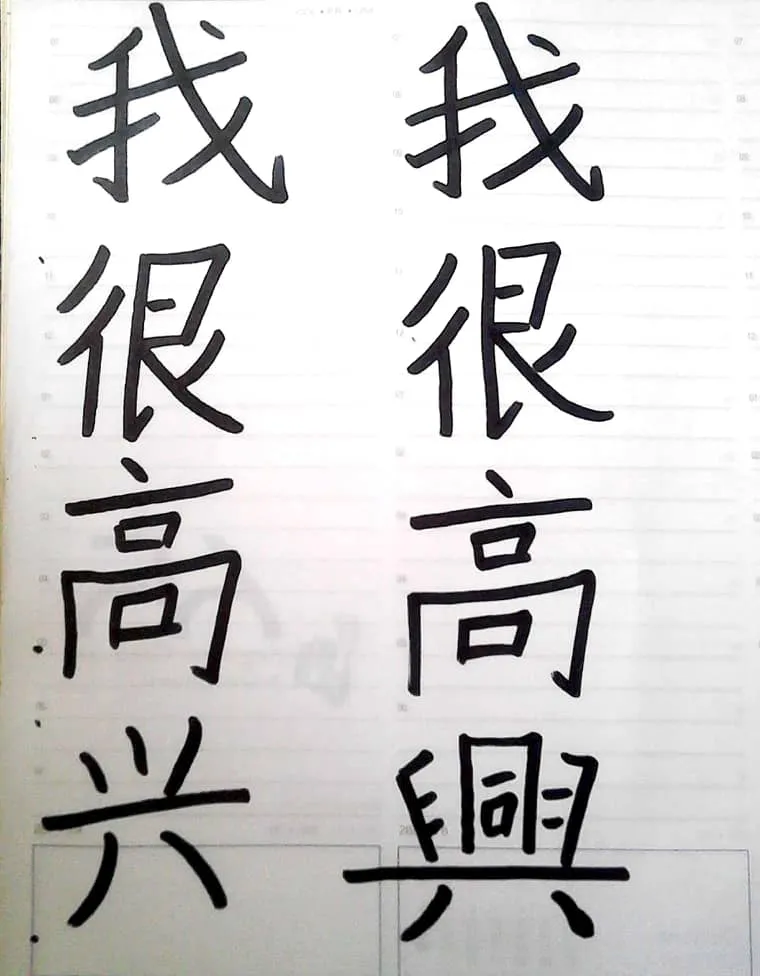 我很高兴
我很高興